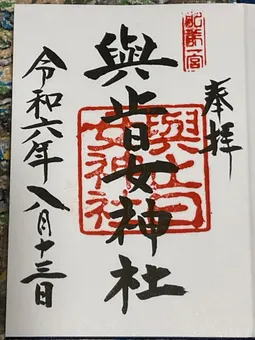 肥前一宮
奉拝
與止日女神社
與止日
女神社
令和六年八月十三日